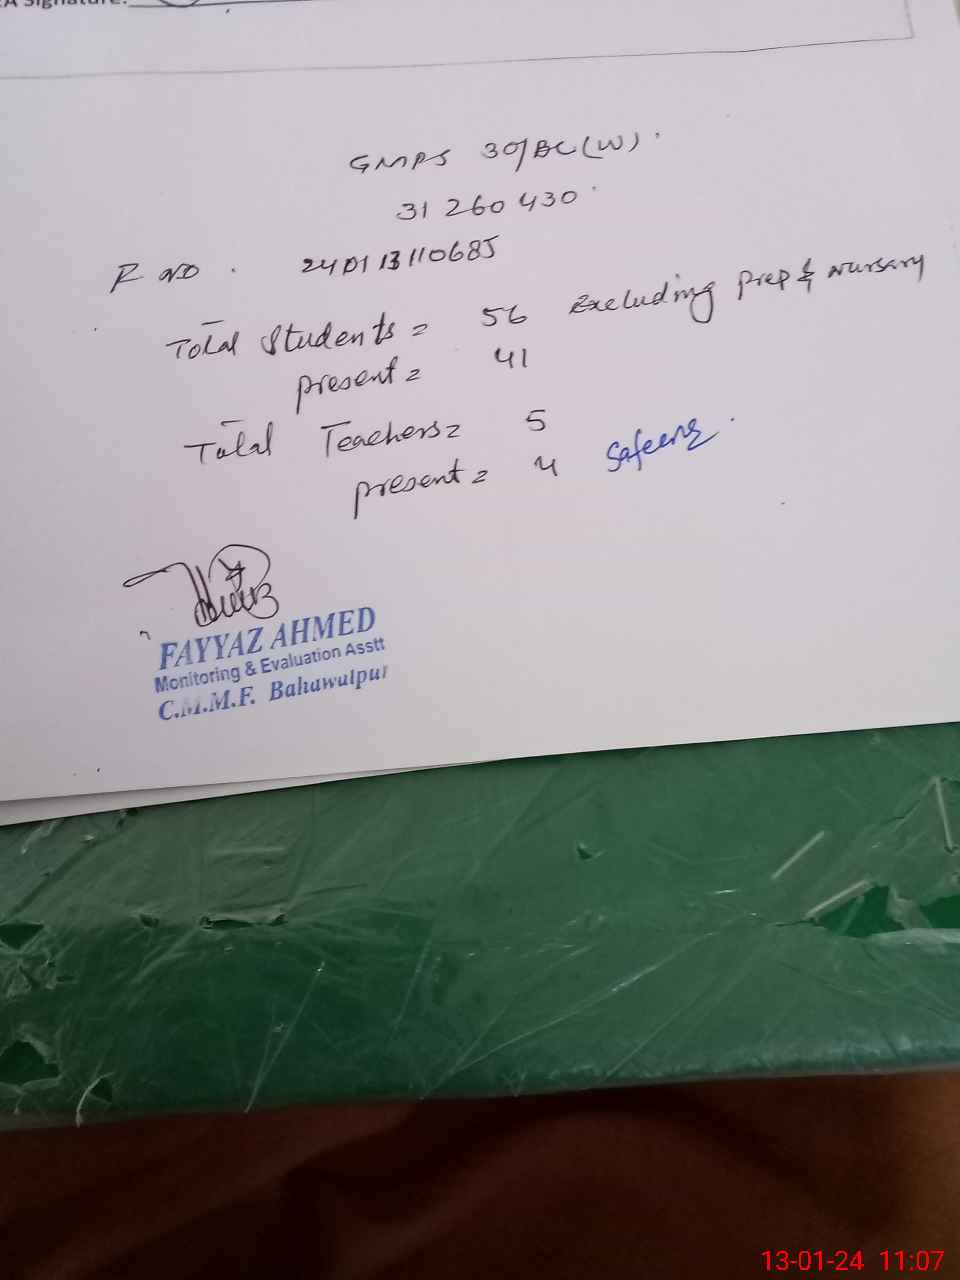 A Signature:
GMPS 30/BC(W).
31260430
R NO. 240113110685
Total Students = 56 Excluding prep & Nursary
present = 41
Total Teachers = 5
present = 4 Safeena.
FAYYAZ AHMED
Monitoring & Evaluation Asstt
C.M.M.F. Bahawalpur
13-01-24 11:07